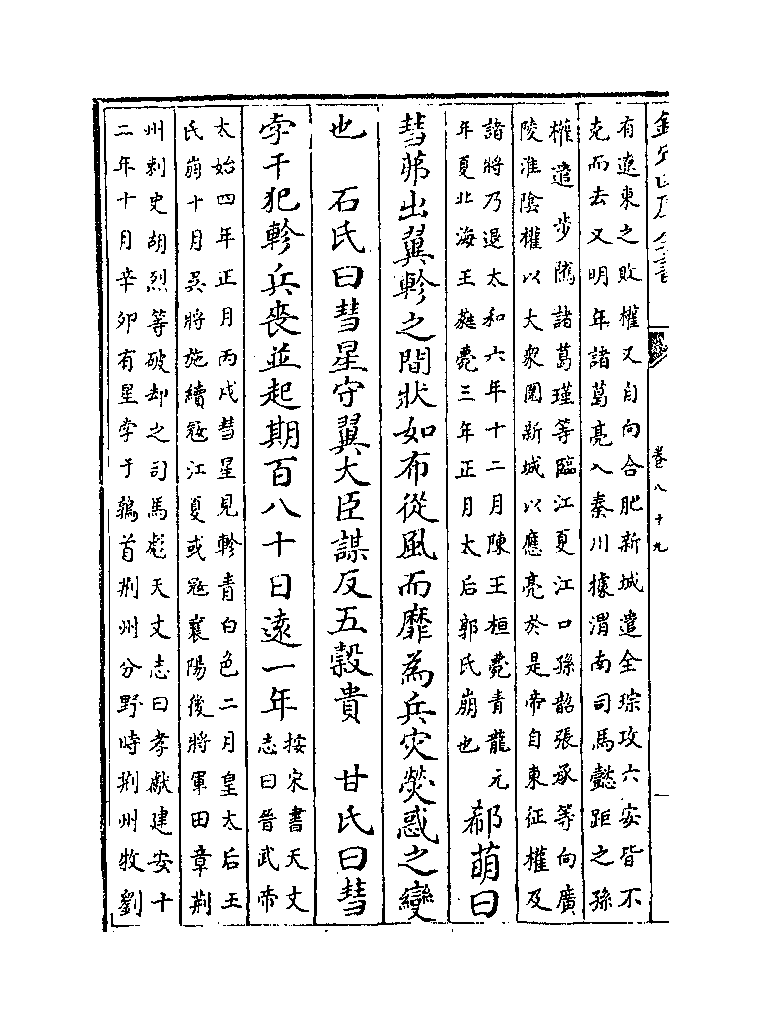 欽定四庫全書
卷八十九
有遼東之敗權又自向合肥新城遣全琮攻六安皆不
克而去又明年諸葛亮入秦川據渭南司馬懿距之孫
權遣步隲諸葛瑾等臨江夏江口孫韶張承等向廣
陵淮陰權以大衆圍新城以應亮於是帝自東征權及
諸將乃退太和六年十二月陳王植薨青龍元
年夏北海王蕤薨三年正月太后郭氏崩也
郗萌曰
彗茀出翼軫之間狀如布從風而靡為兵灾熒惑之變
也 石氏曰彗星守翼大臣謀反五穀貴 甘氏曰彗
孛干犯軫兵喪並起期百八十日遠一年
按宋書天文
志曰晉武帝
太始四年正月丙戌彗星見軫青白色二月皇太后王
氏崩十月吳將施績寇江夏或寇襄陽後將軍田章荆
州刺史胡烈等破却之司馬彪天文志曰孝獻建安十
二年十月辛卯有星孛于鶉首荆州分野時荆州牧劉